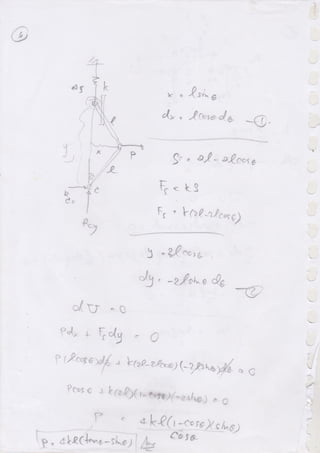 6
k
l
x
P
y
l
C
x = l sinθ
dx = l cosθ dθ — 1
S = 2l - 2l cosθ
Fs = kS
Fs = k(2l-2lcosθ)
y = 2l cosθ
dy = -2l sinθ dθ — 2
dU = 0
Pdx + Fsdy = 0
P(l cosθ)dθ + k(2l-2lcosθ)(-2l sinθ)dθ = 0
Pcosθ + k(2l)(1-cosθ)(-2sinθ) = 0
P = 4kl(1-cosθ)(sinθ)
cosθ
P = 4kl(tanθ-sinθ)